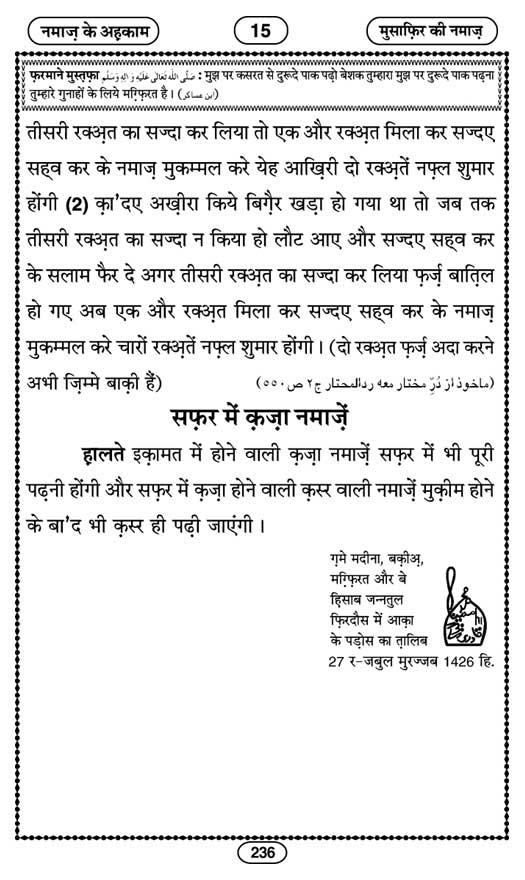 नमाज़ के अह़काम
15
मुसाफ़िर की नमाज़
फ़रमाने मुस्त़फ़ा صَلَّى اللّٰهُ تَعَالٰى عَلَيْهِ وَاٰلِهٖ وَسَلَّم : मुझ पर कसरत से दुरूदे पाक पढ़ो बेशक तुम्हारा मुझ पर दुरूदे पाक पढ़ना
तुम्हारे गुनाहों के लिये मग़्फ़िरत है। (ابن عساکر)
तीसरी रक्अ़त का सज्दा कर लिया तो एक और रक्अ़त मिला कर सज्दए
सह्व कर के नमाज़ मुकम्मल करे येह आख़िरी दो रक्अ़तें नफ़्ल शुमार
होंगी (2) क़ा'दए अख़ीरा किये बिग़ैर खड़ा हो गया था तो जब तक
तीसरी रक्अ़त का सज्दा न किया हो लौट आए और सज्दए सह्व कर
के सलाम फैर दे अगर तीसरी रक्अ़त का सज्दा कर लिया फ़र्ज़ बात़िल
हो गए अब एक और रक्अ़त मिला कर सज्दए सह्व कर के नमाज़
मुकम्मल करे चारों रक्अ़तें नफ़्ल शुमार होंगी। (दो रक्अ़त फ़र्ज़ अदा करने
अभी ज़िम्मे बाक़ी हैं) (ماخوذ از دُرِّ مختار معہ ردالمحتار ج۲ ص ۵۵۰)
सफ़र में क़ज़ा नमाज़ें
ह़ालते इक़ामत में होने वाली क़ज़ा नमाज़ें सफ़र में भी पूरी
पढ़नी होंगी और सफ़र में क़ज़ा होने वाली क़स्र वाली नमाज़ें मुक़ीम होने
के बा'द भी क़स्र ही पढ़ी जाएंगी।
ग़मे मदीना, बक़ीअ़,
मग़्फ़िरत और बे
ह़िसाब जन्नतुल
फ़िरदौस में आक़ा
के पड़ोस का त़ालिब
27 र-जबुल मुरज्जब 1426 हि.
236